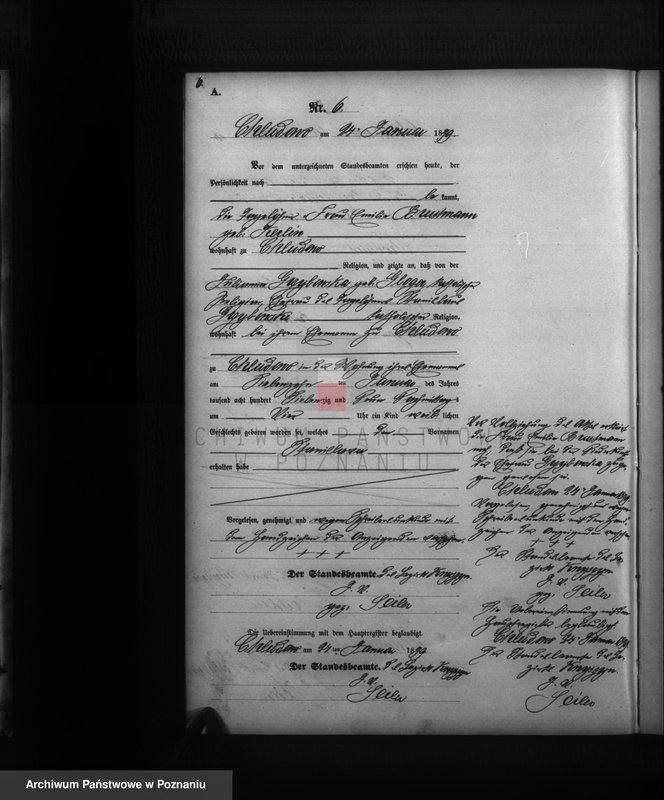 6.
A.
Nr. 6.
Chludowo am 24. Januar 1879.
Vor dem unterzeichneten Standesbeamten erschien heute, der
Persönlichkeit nach
be kannt,
die Frau Emilie Brustmann
geb.
wohnhaft zu Chludowo
Religion, und zeigte an, daß von der
geb. katholischer
Religion, Ehefrau des Stanislaus
katholischer Religion,
wohnhaft bei ihrem Ehemann zu Chludowo
zu Chludowo in der Wohnung ihres Ehemanns
am siebenzehnten Januar des Jahres
tausend acht hundert siebenzig und neun Nachmittags
um vier Uhr ein Kind weib lichen
Geschlechts geboren worden sei, welches den Vornamen
Stanislawa
erhalten habe
Vorgelesen, genehmigt und wegen Schreibensunkunde mit
dem Handzeichen der Anzeigenden versehen
+ + +
Der Standesbeamte. des Bezirks
J. V.
gez. Seiler
Die Uebereinstimmung mit dem Hauptregister beglaubigt.
Chludowo am 24 ten Januar 1879
Der Standesbeamte. des Bezirks
J. V.
Seiler
Vor Vollziehung des Aktes erklärt
die Frau Emilie Brustmann
noch, daß sie bei der Niederkunft
der Ehefrau zuge-
gen gewesen sei.
Chludowo 24. Januar 79.
Vorgelesen, genehmigt und wegen
Schreibensunkunde mit dem Hand-
zeichen der Anzeigenden versehen
+ + +
Der Standesbeamte des Be-
zirks
J. V.
gez. Seiler
Die Uebereinstimmung mit dem
Hauptregister beglaubigt
Chludowo 24. Januar 79.
Der Standesbeamte des Be-
zirks
J. V.
Seiler
ARCHIWUM PAŃSTWOWE
W POZNANIU
Archiwum Państwowe w Poznaniu